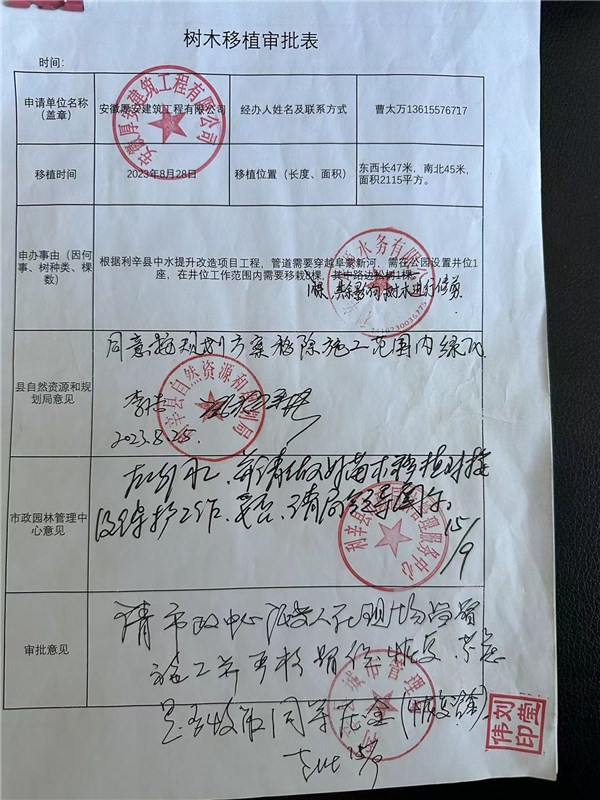 树木移植审批表
时间：
申请单位名称（盖章）
安徽厚安建筑工程有限公司
经办人姓名及联系方式
曹太万13615576717
安徽厚安建筑工程有限公司
移植时间
2023年8月28日
移植位置（长度、面积）
东西长47米，南北45米，
面积2115平方。
申办事由（因何事、树种类、棵数）
根据利辛县中水提升改造项目工程，管道需要穿越阜蒙新河，需在公园设置井位1
座，在井位工作范围内需要移栽8棵，其中路边松树1棵
树木进行修剪
水务有限
县自然资源和规划局意见
同意按规划方案移除施工范围内绿化
2023.8.25.
辛县自然资源和规划局
市政园林管理中心意见
并请做好苗木移植对接
及保护工作，妥否，请局领导阅示。
15/9
利辛县 管理服务中心
审批意见
请市政中心 现场
施工 恢复
是否收取同等
15/9
城市管理
刘莹伟印